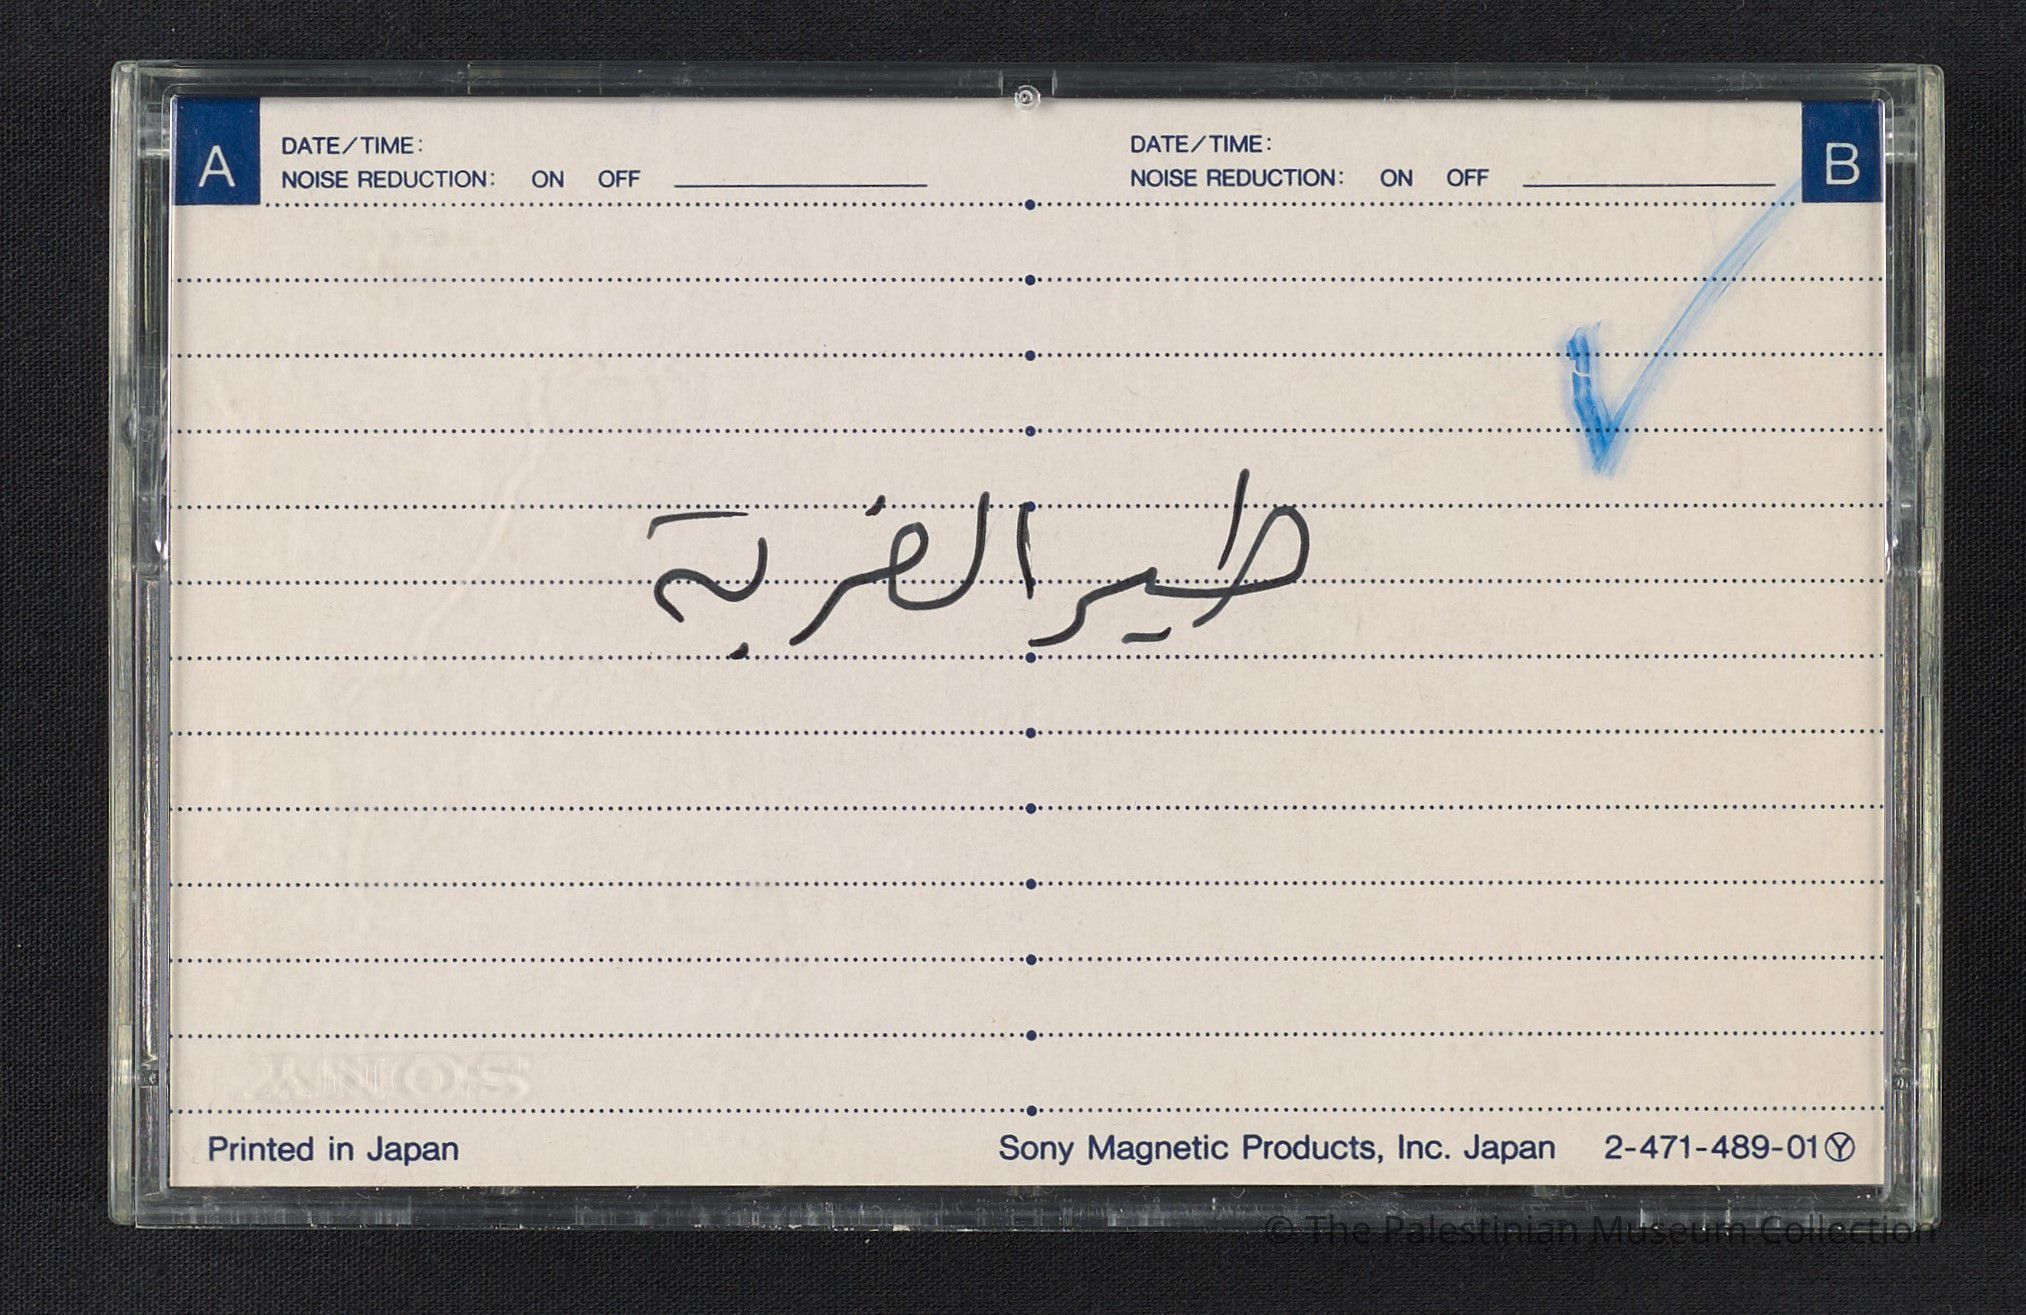 A
DATE/TIME:
NOISE REDUCTION: ON OFF
DATE/TIME:
NOISE REDUCTION: ON OFF
B
طير الغربة
SONY
Printed in Japan
Sony Magnetic Products, Inc. Japan 2-471-489-01 Ⓨ
© The Palestinian Museum Collection